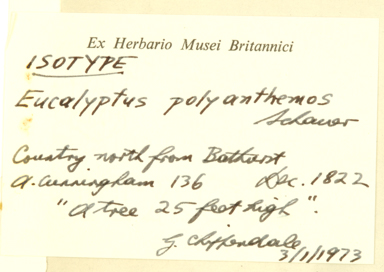 Ex Herbario Musei Britannici
ISOTYPE
Eucalyptus polyanthemos
Schauer
Country north from Bathurst
A. Cunningham 136 Dec. 1822
"A tree 25 feet high".
G. Chippendale
3/1/1973